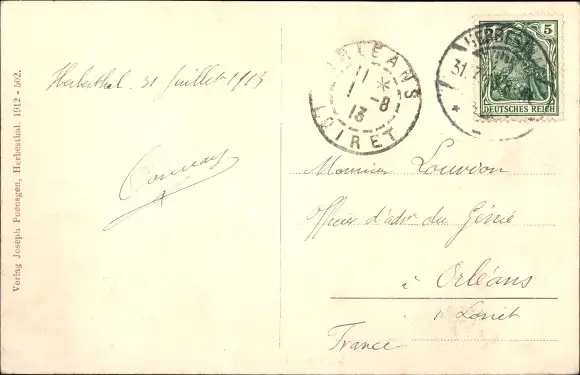 Verlag Joseph Poensgen, Herbesthal. 1912 - 502.
Herbesthal. 31 Juillet 1913
ORLEANS
11
1 * -8
13
LOIRET
HERBESTHAL
31.7
5
DEUTSCHES REICH
Monsieur Louvion
Officier d'adon du Génie
à Orléans
Loiret
France